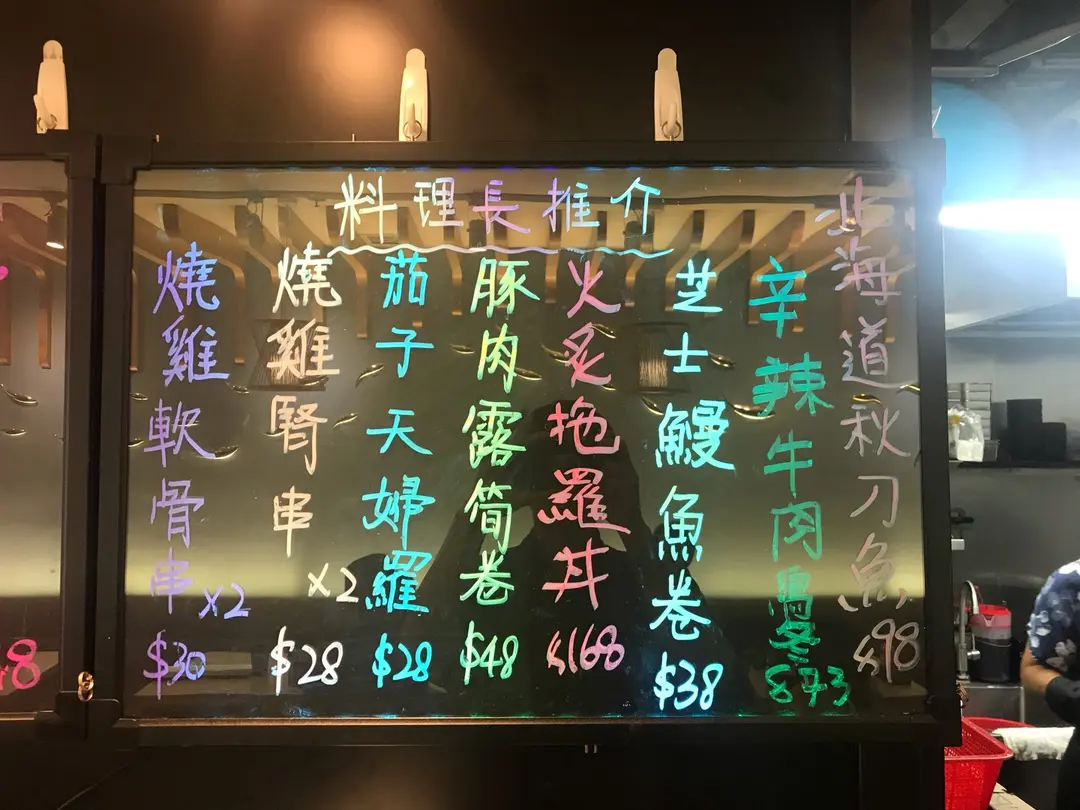 料理長推介
北海道秋刀魚 $98
辛辣牛肉烏冬 $43
芝士鰻魚卷 $38
火炙拖羅丼 $168
豚肉露筍卷 $48
茄子天婦羅 $28
燒雞腎串 x2 $28
燒雞軟骨串 x2 $30
8